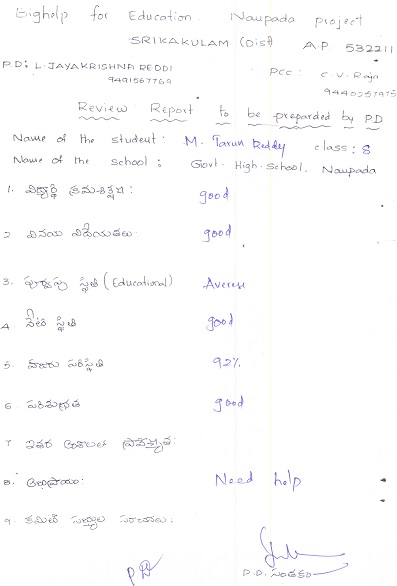 Bighelp for Education. Naupada project
SRIKAKULAM (Dist) A.P 532211
P.D: L. JAYAKRISHNA REDDI PCC: C.V. Raju
9491567769 9440257975
Review Report to be preparded by PD
Name of the student: M. Tarun Reddy class: 8
Name of the school: Govt. High-School, Naupada
1. విద్యార్థి క్రమశిక్షణ: good
2. వినయ విధేయతలు: good
3. పూర్వపు స్థితి (Educational) Averese
4. నేటి స్థితి good
5. హాజరు పరిస్థితి 92%
6. పరిశుభ్రత good
7. ఇతర అంశాలలో ప్రావీణ్యత:
8. అభిప్రాయం: Need help
9. కమిటీ సభ్యుల సూచనలు:
PD P.D. సంతకం